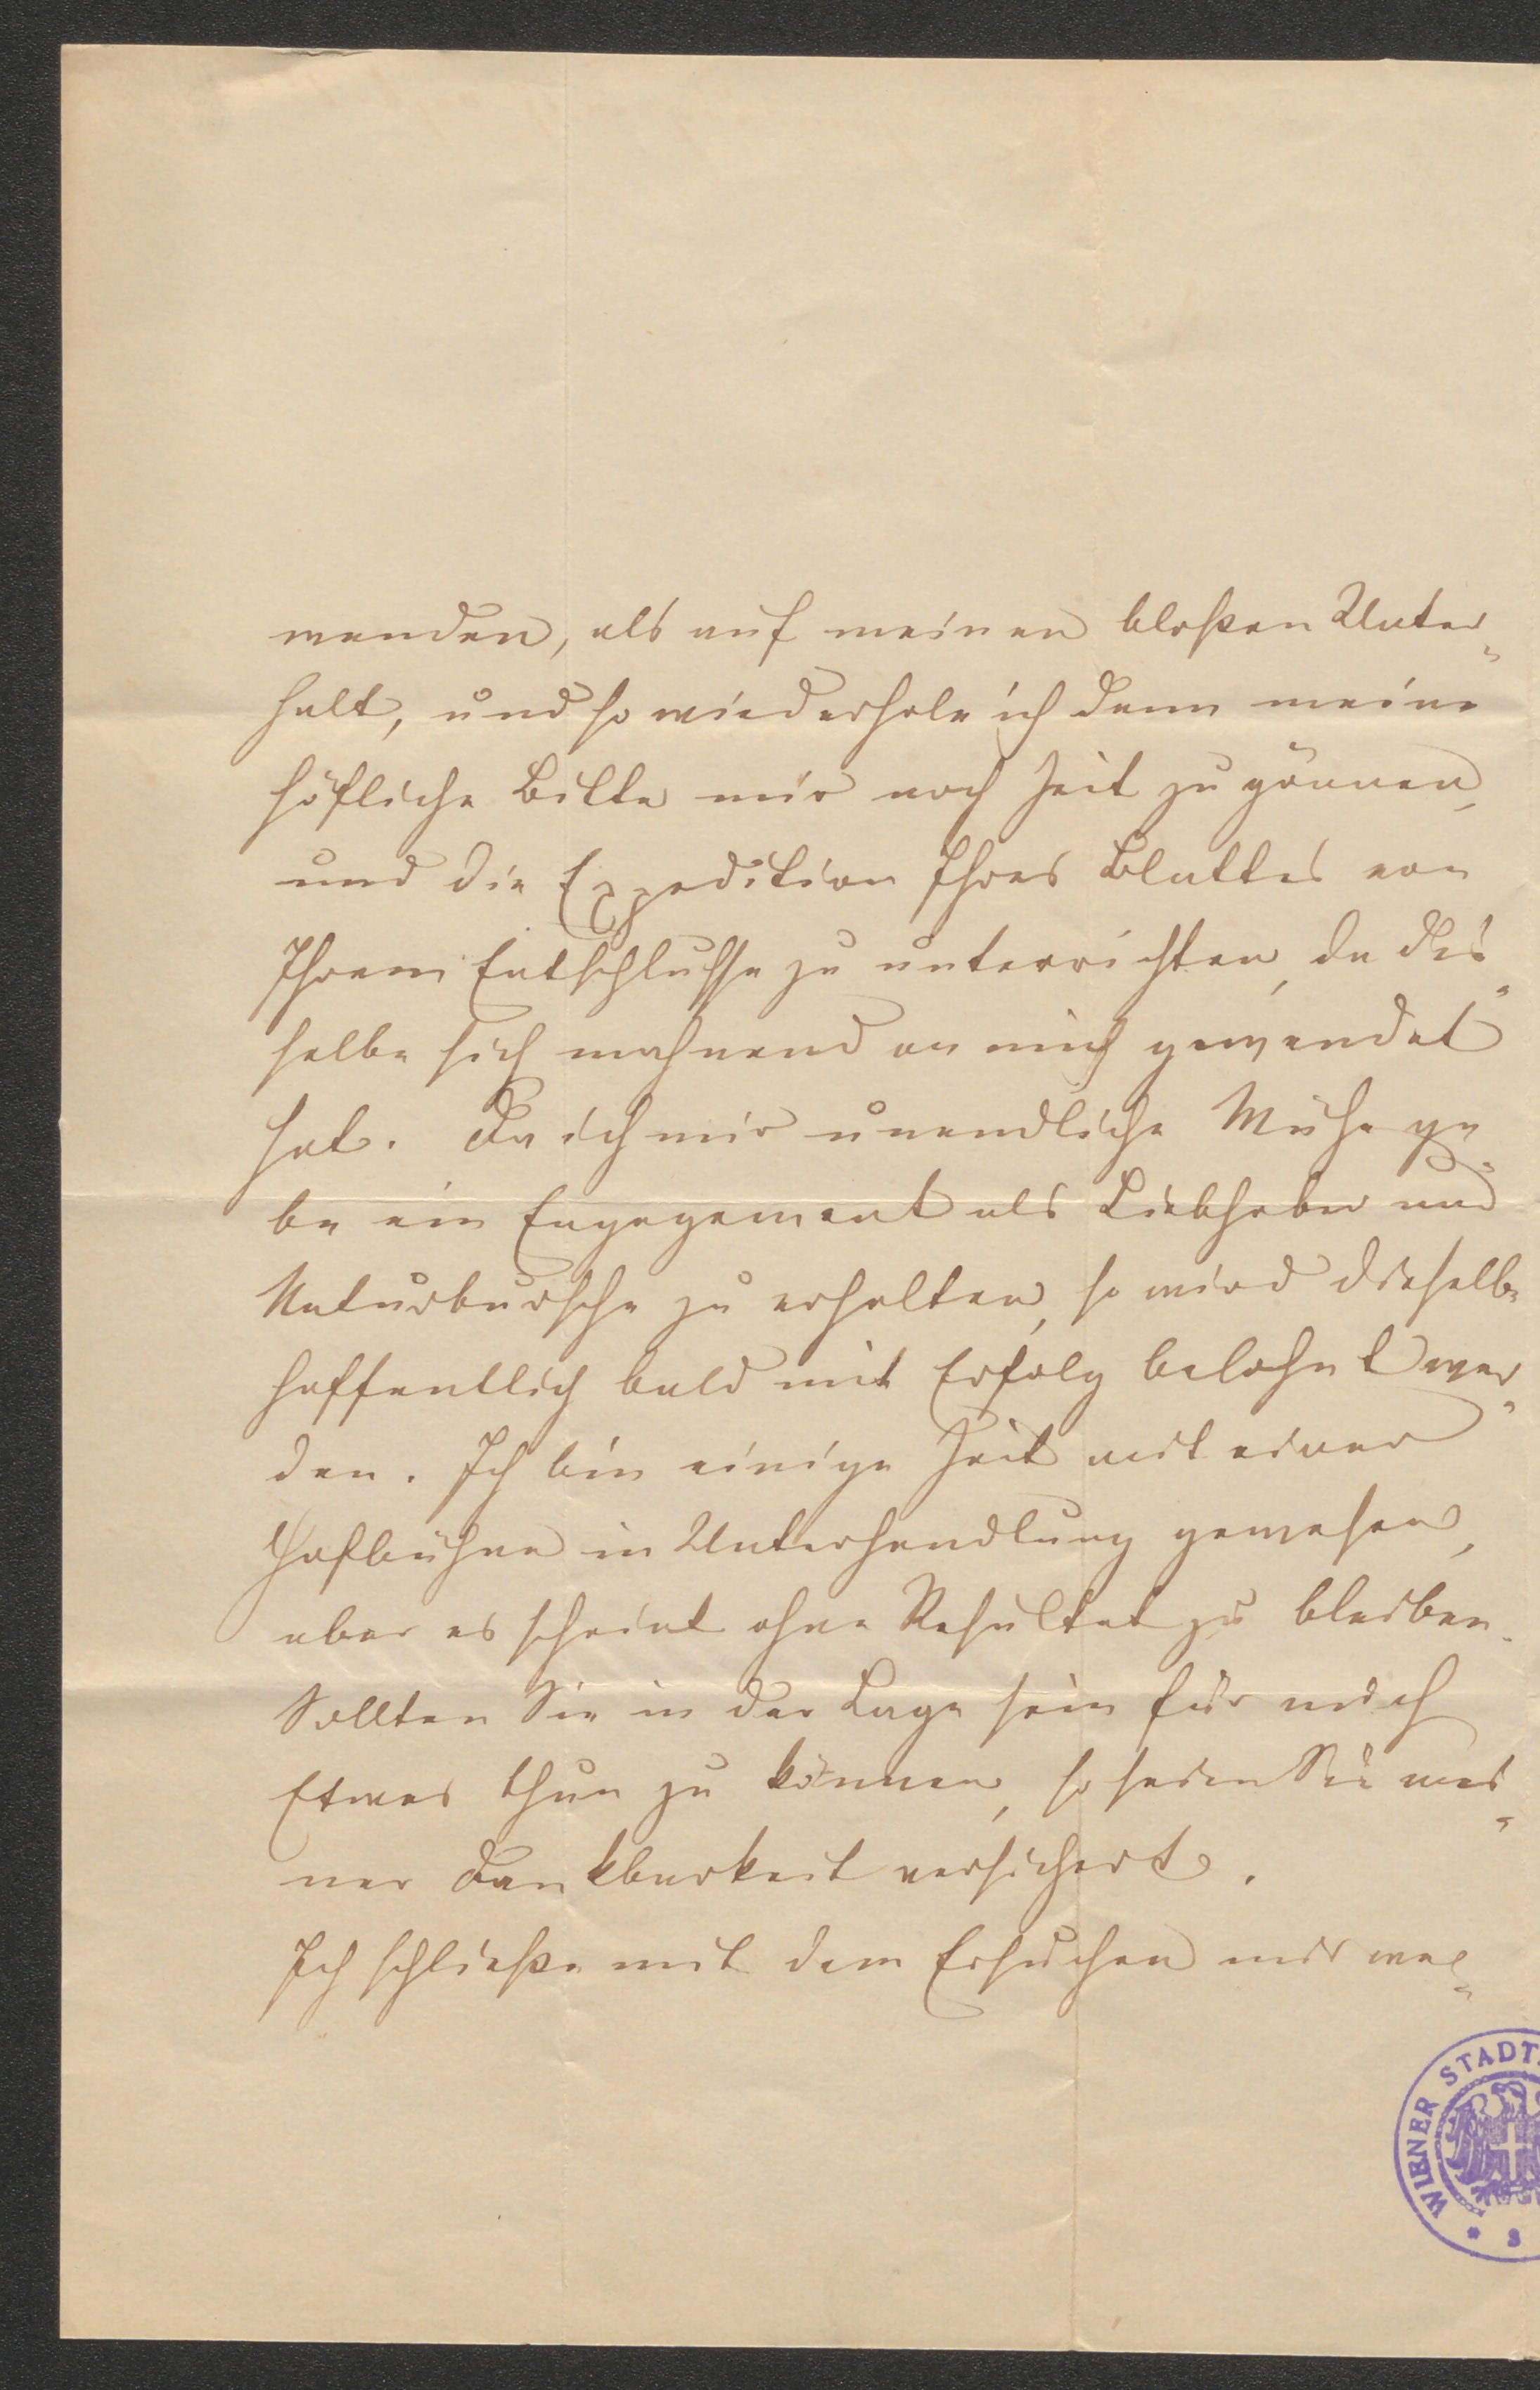 wenden, als auf meinen bloßen Unter-
halt, und so wiederhole ich denn meine
höfliche Bitte mir noch Zeit zu gönnen,
und die Expedition Ihres Blattes von
Ihrem Entschlusse zu unterrichten, da die-
selbe sich mahnend an mich gewendet
hat. Da ich mir unendliche Mühe ge-
be ein Engagement als Liebhaber und
Naturbursche zu erhalten, so wird dieselbe
hoffentlich bald mit Erfolg belohnt wer-
den. Ich bin einige Zeit mit einer
Hofbühne in Unterhandlung gewesen,
aber es scheint ohne Resultat zu bleiben.
Sollten Sie in der Lage sein für mich
Etwas thun zu können, so seien Sie mei-
ner Dankbarkeit versichert.
Ich schließe mit dem Ersuchen mir wel-
WIENER STADT